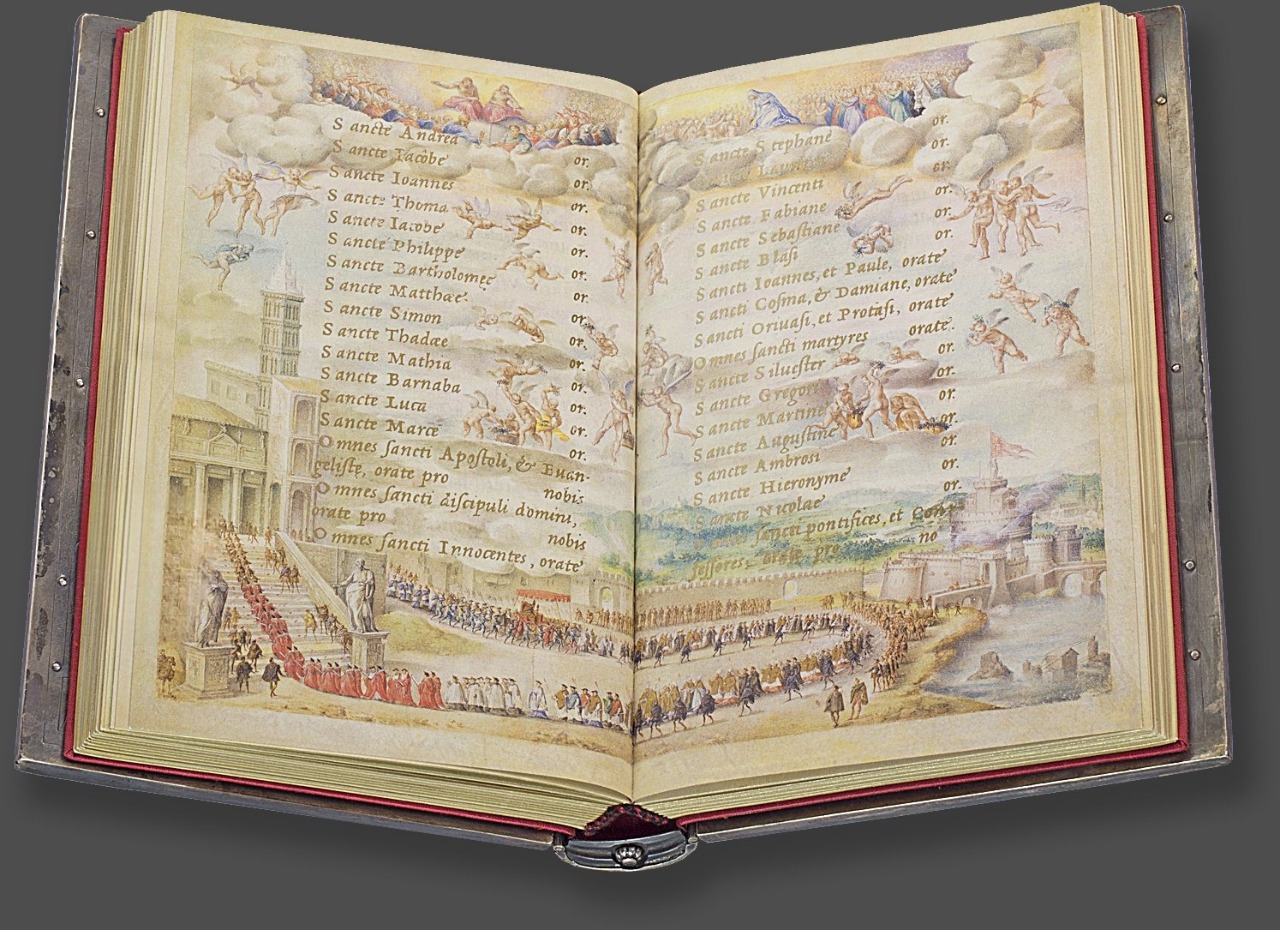 Sancte Andrea
Sancte Iacobe or.
Sancte Ioannes or.
Sancte Thoma or.
Sancte Iacobe or.
Sancte Philippe or.
Sancte Bartholomeę or.
Sancte Matthæe or.
Sancte Simon or.
Sancte Thadæe or.
Sancte Mathia or.
Sancte Barnaba or.
Sancte Luca or.
Sancte Marce or.
Omnes ſancti Apoſtoli, & Euan- or.
geliſtę, orate pro nobis
Omnes ſancti diſcipuli domini,
orate pro nobis
Omnes ſancti Innocentes, orate
Sancte Stephane or.
Sancte or.
Sancte Vincenti or.
Sancte Fabiane or.
Sancte Sebaſtiane or.
Sancte Blaſi or.
Sancti Ioannes, et Paule, orate
Sancti Coſma, & Damiane, orate
Sancti, et Protaſi, orate
Omnes ſancti martyres orate.
Sancte Silueſter or.
Sancte Gregori or.
Sancte Martine or.
Sancte Auguſtine or.
Sancte Ambroſi or.
Sancte Hieronyme or.
Sancte Nicolae or.
ſancti pontifices, et Con-
feſſores, orate pro no